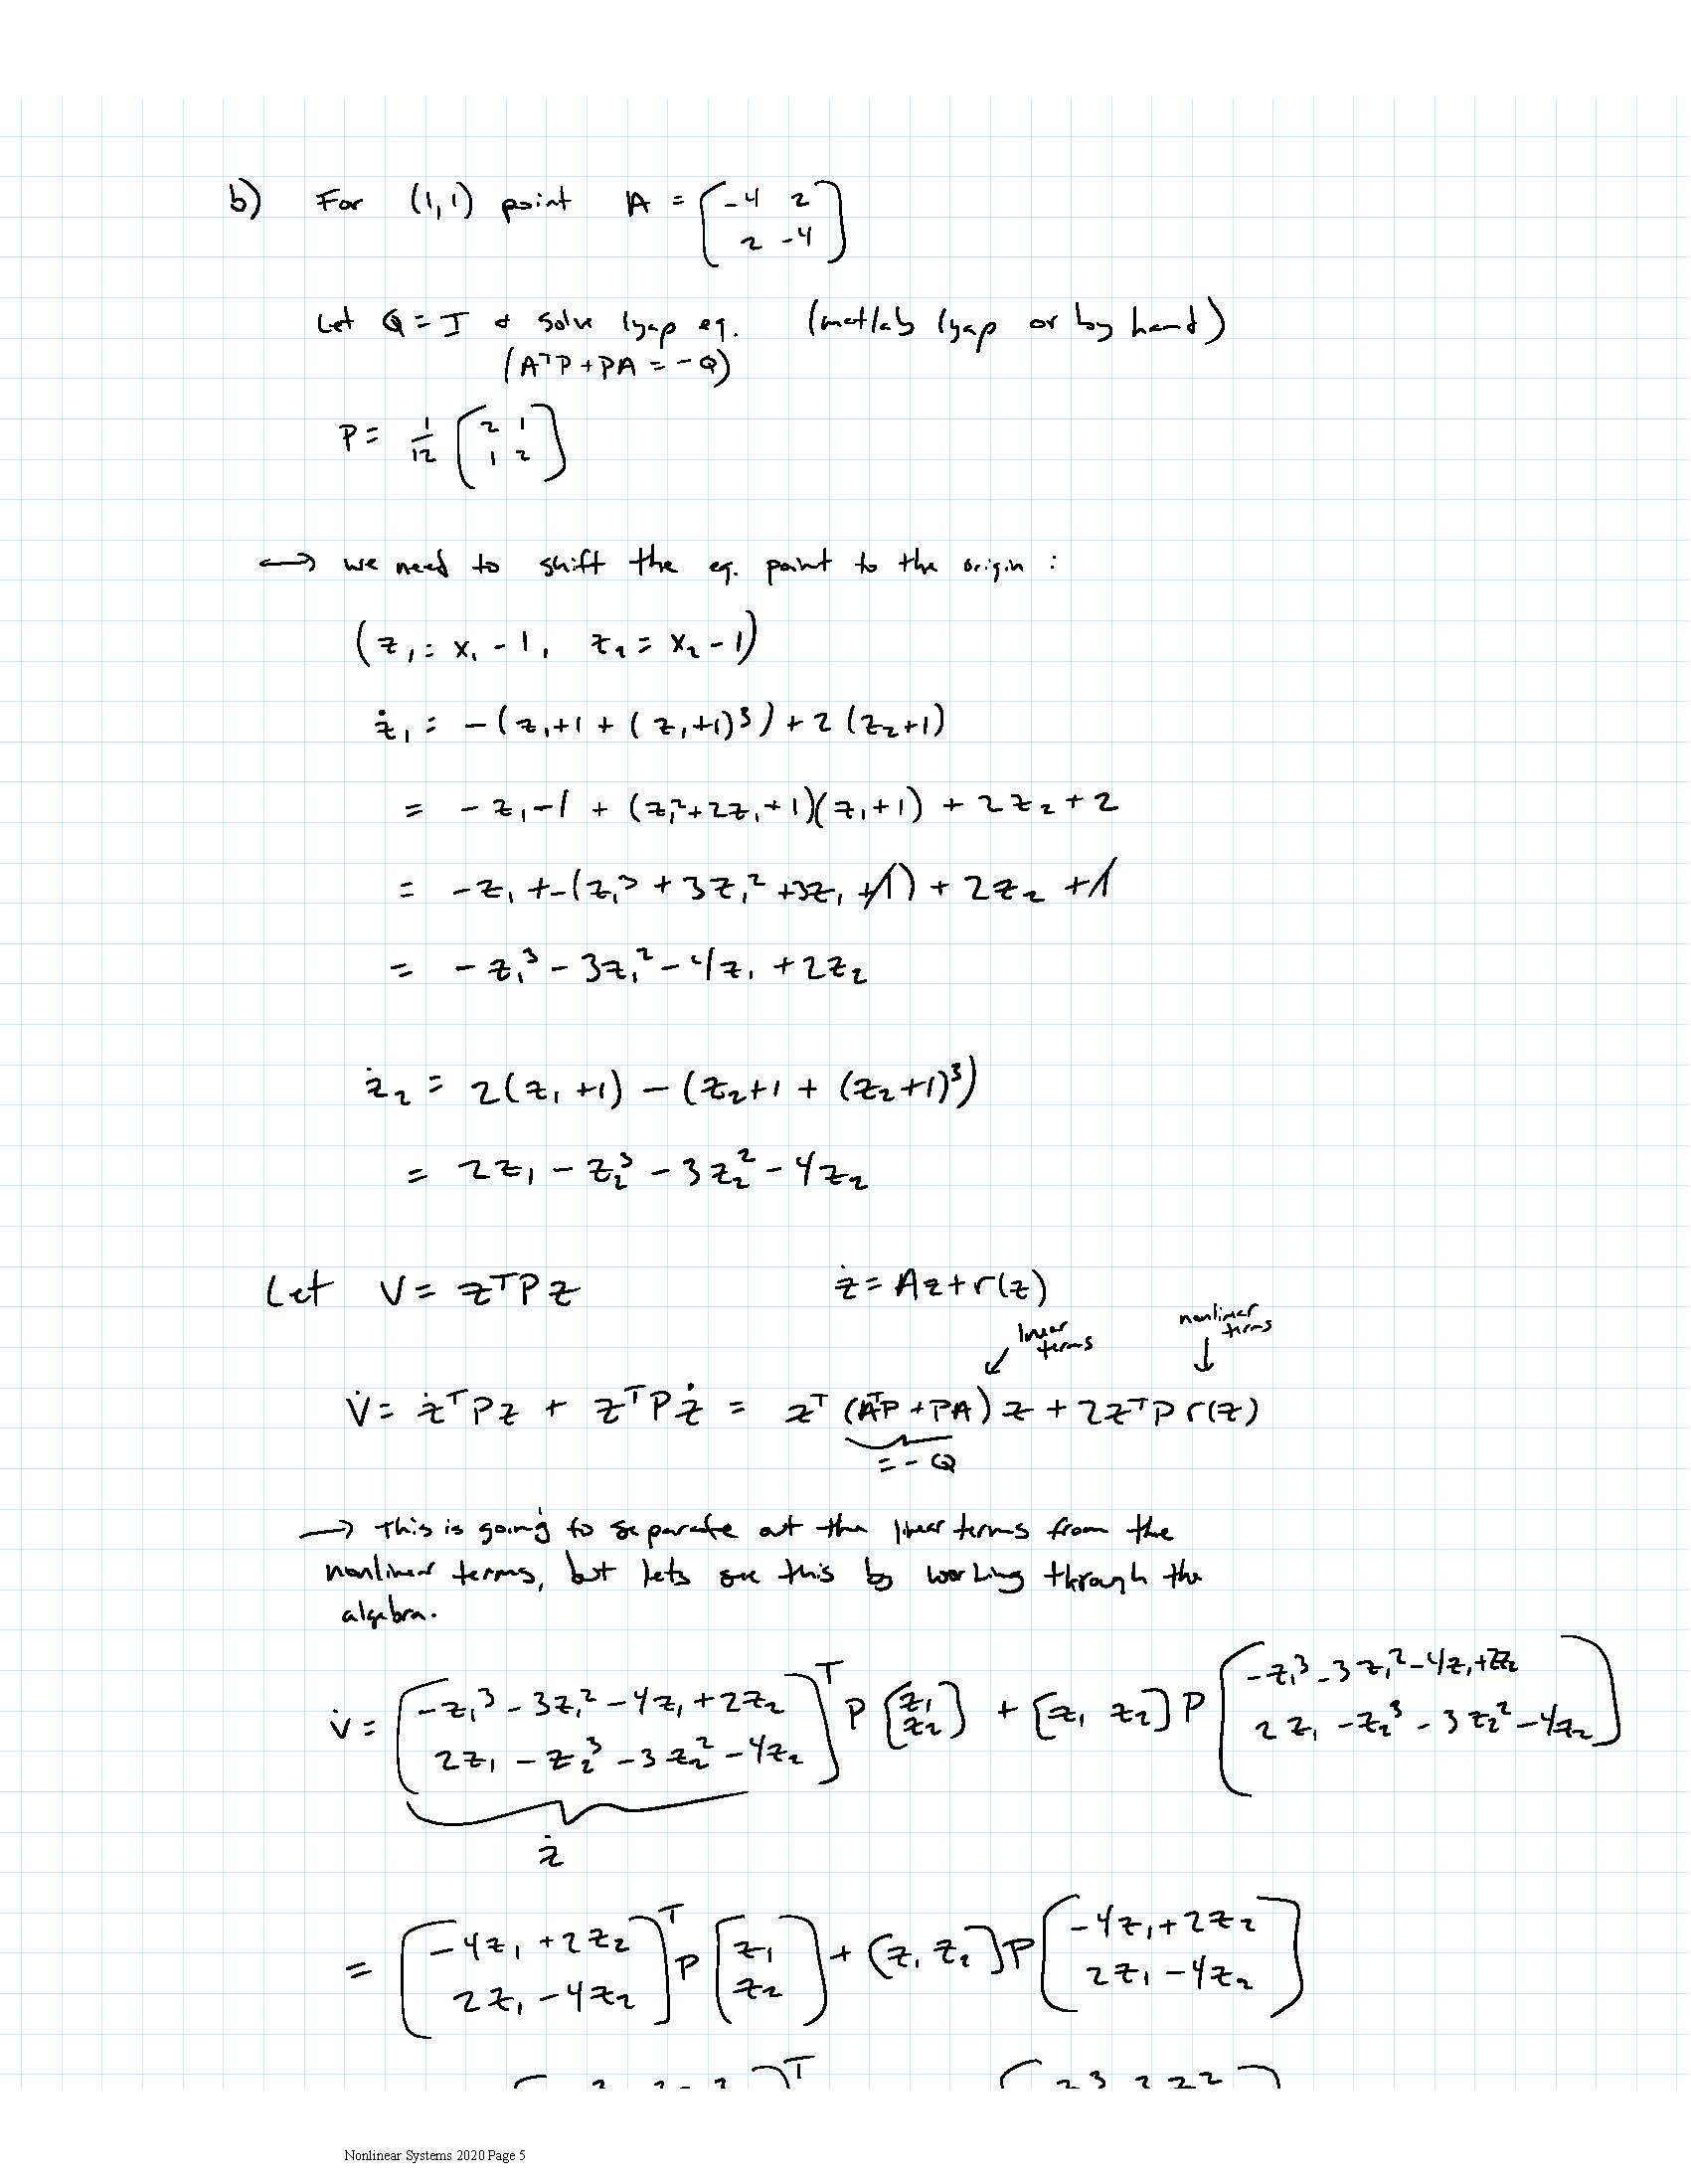 b) For (1,1) point A = [-4 2; 2 -4]
Let Q = I & solve lyap eq. (matlab lyap or by hand)
(AᵀP + PA = -Q)
P = 1/12 [2 1; 1 2]
↔ we need to shift the eq. point to the origin :
(z₁ = x₁ - 1, z₂ = x₂ - 1)
ż₁ = -(z₁+1 + (z₁+1)³) + 2(z₂+1)
= -z₁-1 + (z₁²+2z₁+1)(z₁+1) + 2z₂ + 2
= -z₁ +-(z₁³ + 3z₁² +3z₁ +1) + 2z₂ +1
= -z₁³ - 3z₁² - 4z₁ + 2z₂
ż₂ = 2(z₁+1) - (z₂+1 + (z₂+1)³)
= 2z₁ - z₂³ - 3z₂² - 4z₂
Let V = zᵀPz ż = Az + r(z)
linear terms nonlinear terms
V̇ = żᵀPz + zᵀPż = zᵀ(AᵀP + PA)z + 2zᵀP r(z)
= -Q
→ This is going to separate out the linear terms from the
nonlinear terms, but lets see this by working through the
algebra.
V̇ = [-z₁³ - 3z₁² - 4z₁ + 2z₂; 2z₁ - z₂³ - 3z₂² - 4z₂]ᵀ P [z₁; z₂] + [z₁ z₂] P [-z₁³ - 3z₁² - 4z₁ + 2z₂; 2z₁ - z₂³ - 3z₂² - 4z₂]
ż
= [-4z₁ + 2z₂; 2z₁ - 4z₂]ᵀ P [z₁; z₂] + [z₁ z₂] P [-4z₁ + 2z₂; 2z₁ - 4z₂]
Nonlinear Systems 2020 Page 5